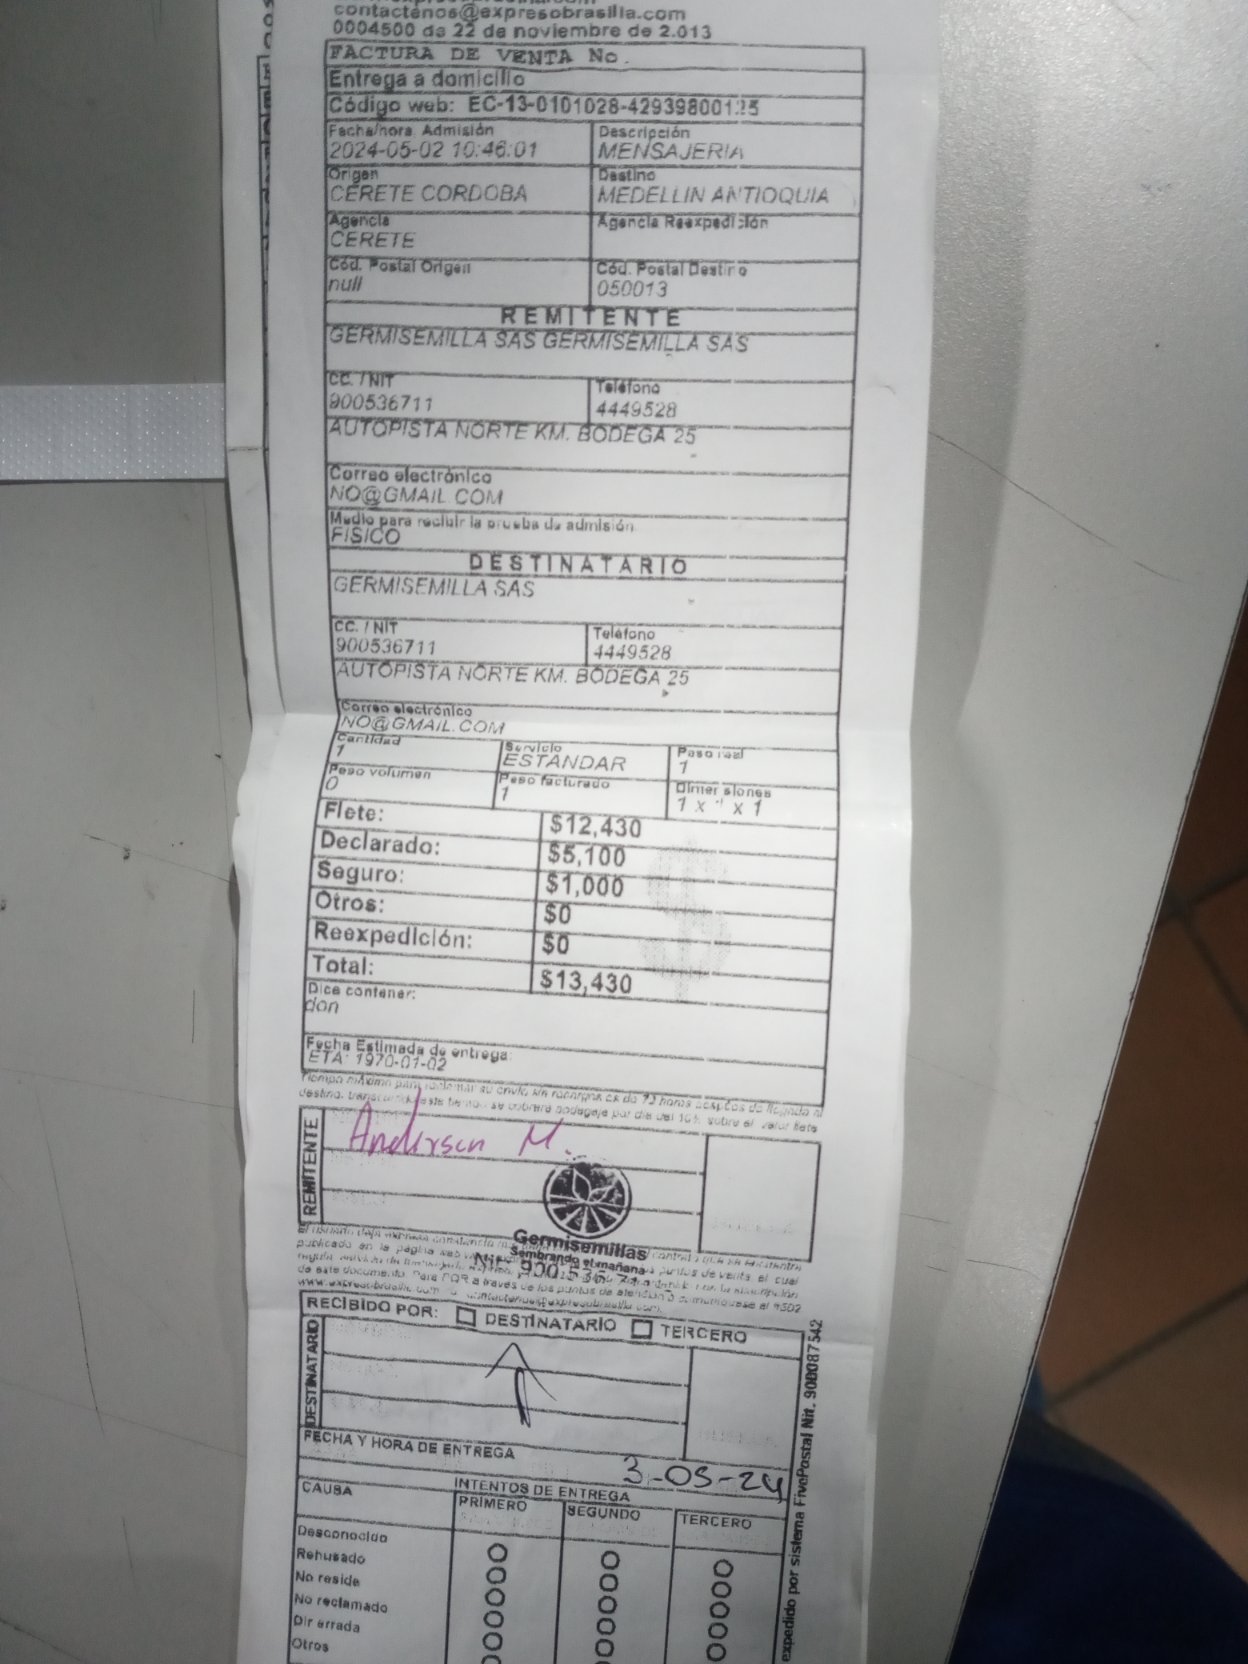 contactenos@expresobrasilla.com
0004500 de 22 de noviembre de 2.013
FACTURA DE VENTA No.
Entrega a domicilio
Código web: EC-13-0101028-42939800125
Fecha/hora Admisión
2024-05-02 10:46:01
Descripción
MENSAJERIA
Origen
CERETE CORDOBA
Destino
MEDELLIN ANTIOQUIA
Agencia
CERETE
Agencia Reexpedición
Cód. Postal Origen
null
Cód. Postal Destino
050013
REMITENTE
GERMISEMILLA SAS GERMISEMILLA SAS
CC. / NIT
900536711
Teléfono
4449528
AUTOPISTA NORTE KM. BODEGA 25
Correo electrónico
NO@GMAIL.COM
Medio para recibir la prueba de admisión
FISICO
DESTINATARIO
GERMISEMILLA SAS
CC. / NIT
900536711
Teléfono
4449528
AUTOPISTA NORTE KM. BODEGA 25
Correo electrónico
NO@GMAIL.COM
Cantidad
1
Servicio
ESTANDAR
Peso real
1
Peso volumen
0
Peso facturado
1
Dimensiones
1 x 1 x 1
Flete: $12,430
Declarado: $5,100
Seguro: $1,000
Otros: $0
Reexpedición: $0
Total: $13,430
Dice contener:
don
Fecha Estimada de entrega:
ETA: 1970-01-02
Tiempo máximo para reclamar su envío sin recargos es de 72 horas después de llegado a
destino, transcurrido este tiempo se cobrará bodegaje por día del 10% sobre el valor flete
REMITENTE
Anderson M.
Germisemillas
Sembrando el mañana
Nit. 900.536.711
El usuario deja expresa constancia que
publicado en la página web
puntos de venta, el cual
de este documento. Para PQR a través de los puntos de atención o comuníquese al
RECIBIDO POR: DESTINATARIO TERCERO
DESTINATARIO
FECHA Y HORA DE ENTREGA
3-05-24
CAUSA
INTENTOS DE ENTREGA
PRIMERO SEGUNDO TERCERO
Desconocido
Rehusado
No reside
No reclamado
Dir errada
Otros
expedido por sistema FivePostal Nit. 900087542